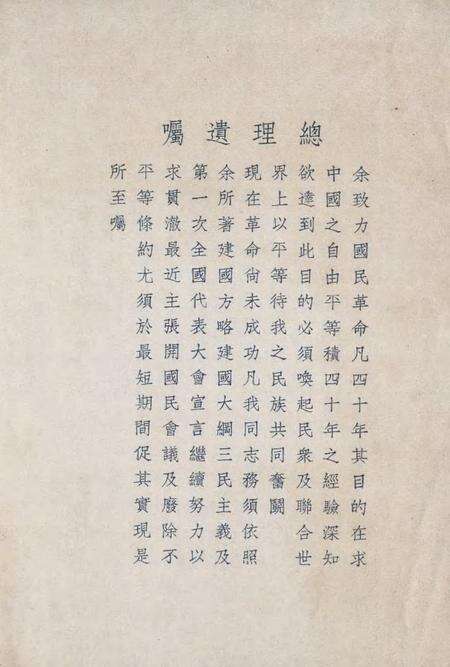 總理遺囑
余致力國民革命凡四十年其目的在求
中國之自由平等積四十年之經驗深知
欲達到此目的必須喚起民衆及聯合世
界上以平等待我之民族共同奮鬬
現在革命尙未成功凡我同志務須依照
余所著建國方略建國大綱三民主義及
第一次全國代表大會宣言繼續努力以
求貫澈最近主張開國民會議及廢除不
平等條約尤須於最短期間促其實現是
所至囑